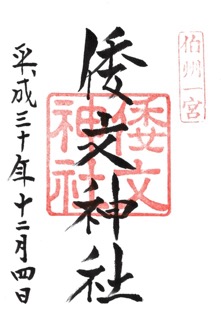 伯州一宮
倭文神社
倭文
神社
平成三十年十二月四日